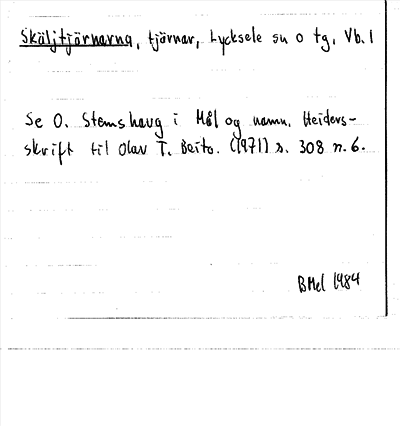 Skäljtjärnarna, tjärnar, Lycksele sn o tg, Vb. l
Se O. Stemshaug i Mål og namn. Heiders-
skrift til Olav T. Beito. (1971) s. 308 n. 6.
BMel 1984